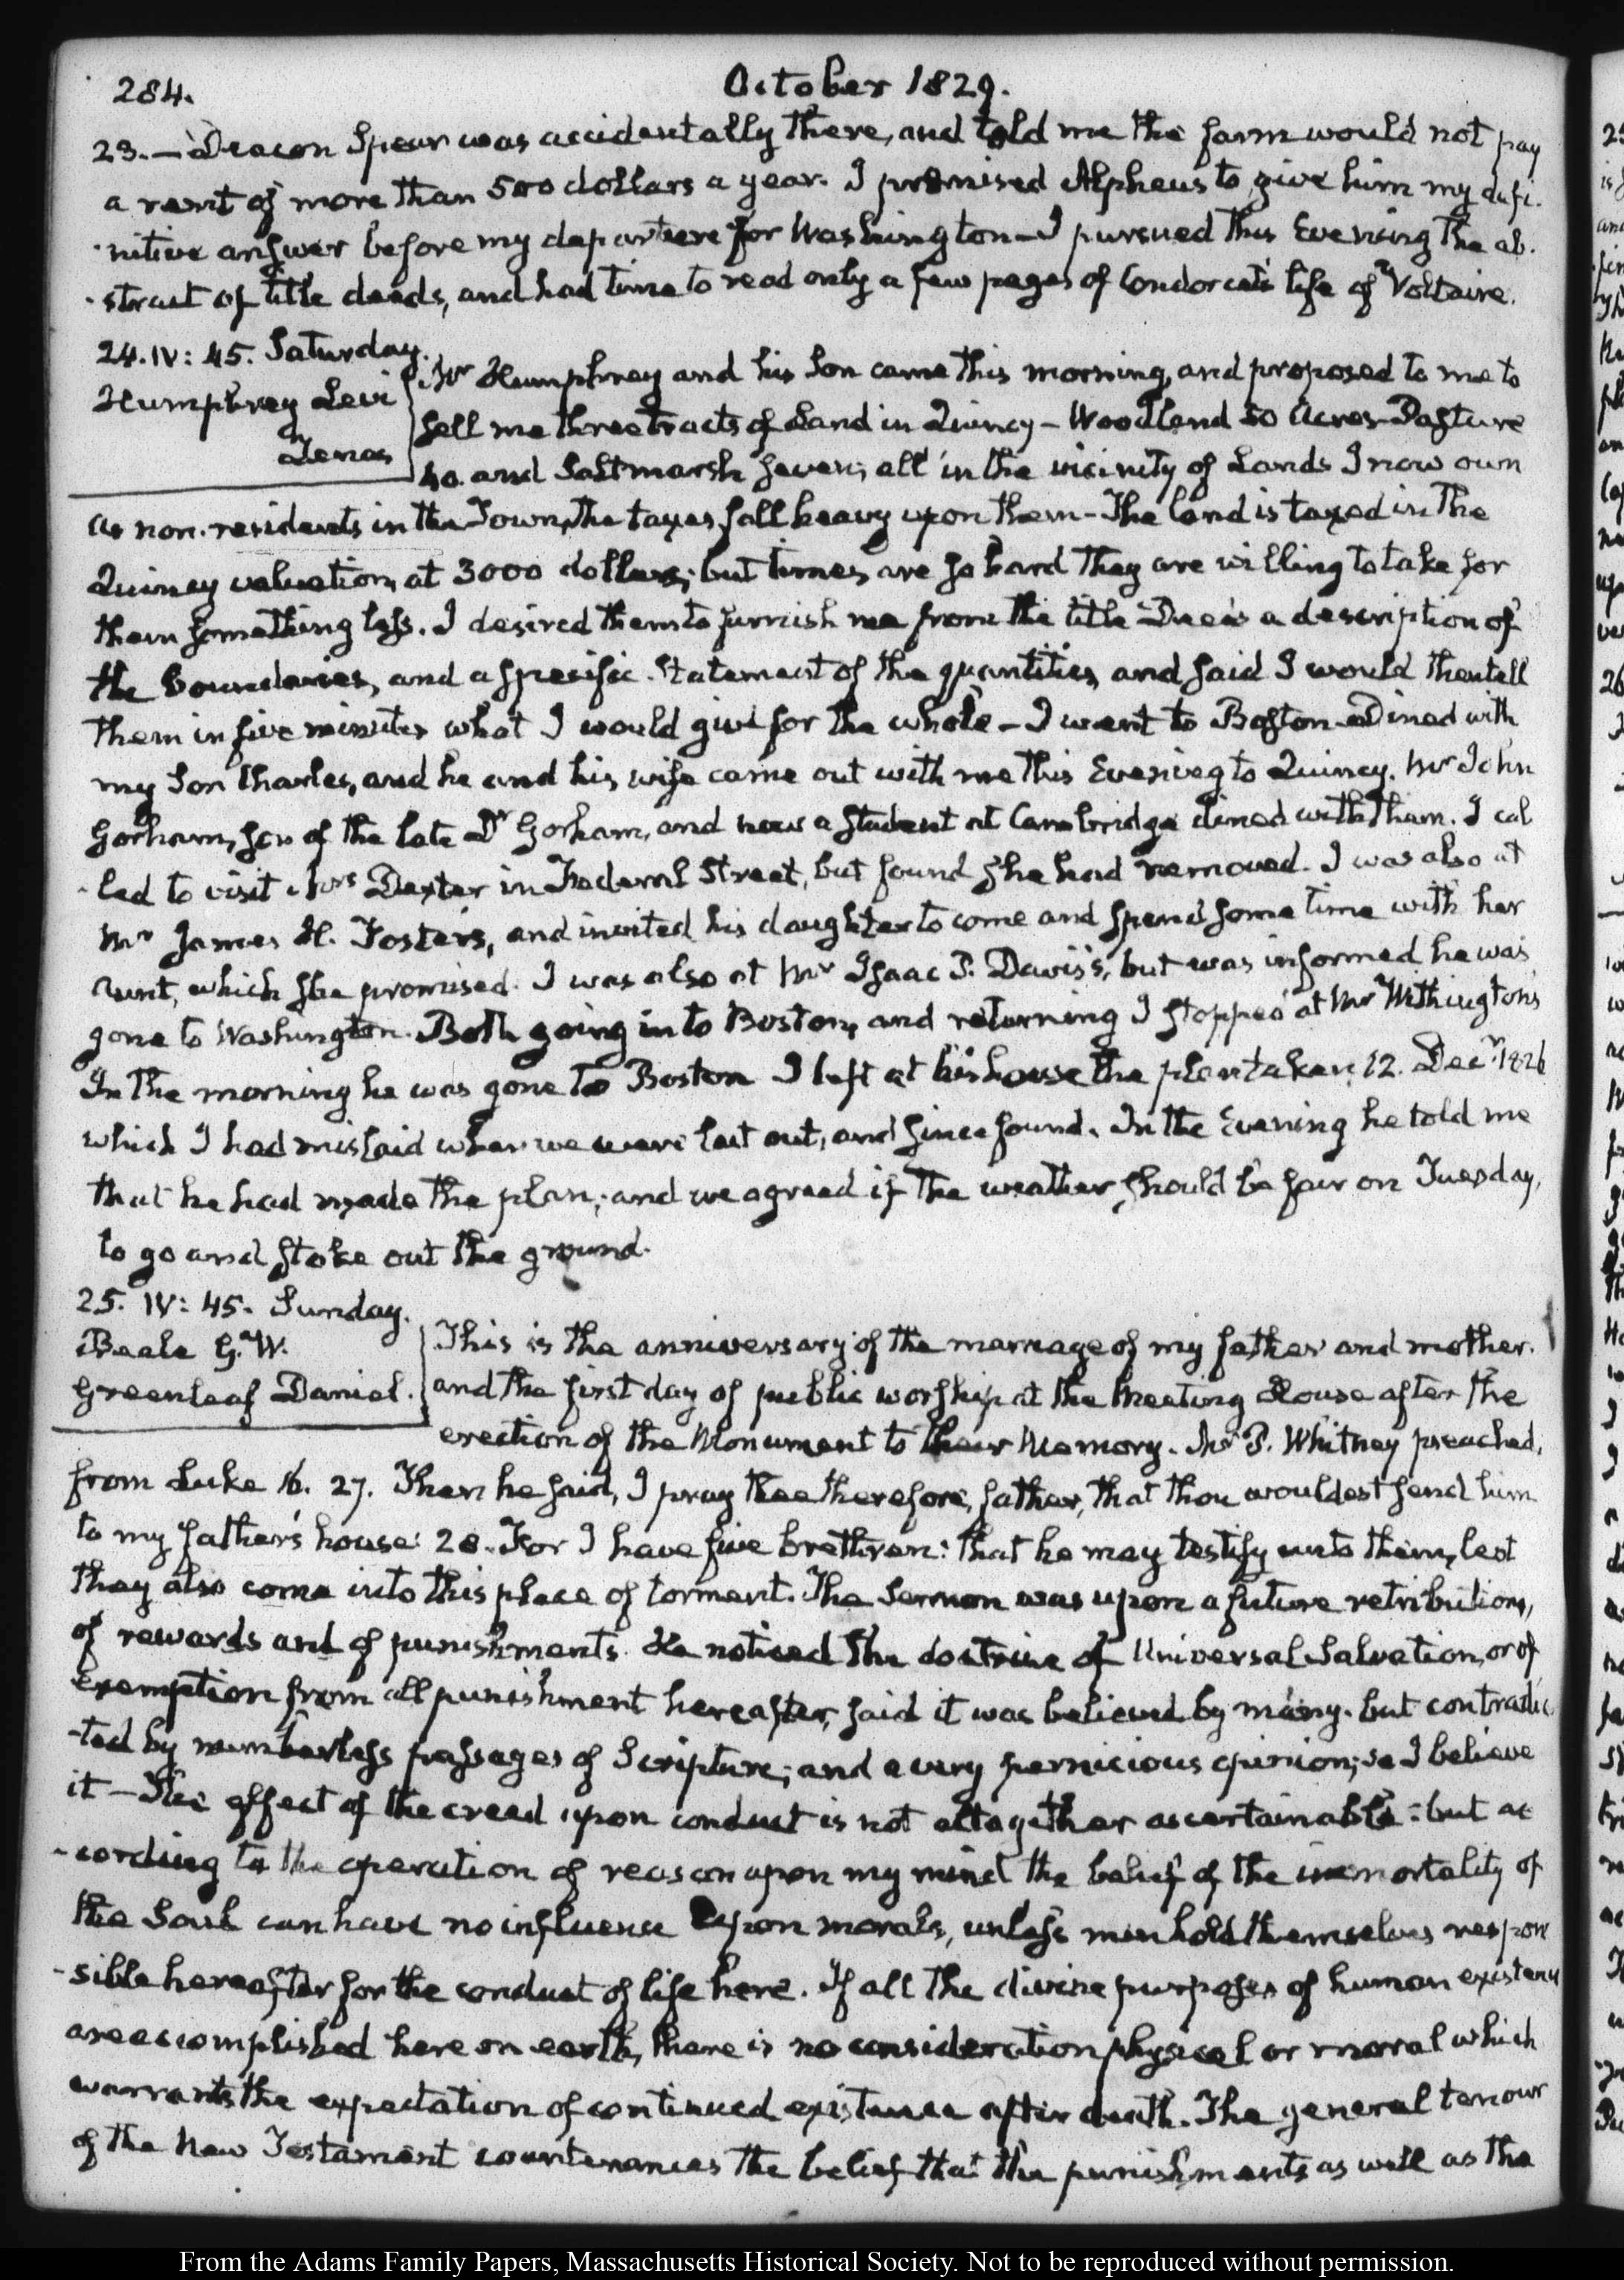 284.
October 1829.
23.—Deacon Spear was accidentally there, and told me the farm would not pay
a rent of more than 500 dollars a year. I promised Alpheus to give him my defi-
-nitive answer before my departure for Washington—I pursued this Evening the ab-
-stract of title deeds, and had time to read only a few pages of Condorcet's life of Voltaire.
24. IV: 45. Saturday.
Humphrey Levi
Lemas
Mr Humphrey and his Son came this morning, and proposed to me to
sell me three tracts of Land in Quincy—Woodland 50 Acres—Pasture
40. and Saltmarsh seven; all in the vicinity of Lands I now own
As non-residents in the Town, the taxes fall heavy upon them—The land is taxed in the
Quincy valuation, at 3000 dollars; but times are so hard they are willing to take for
them something less. I desired them to furnish me from the title Deeds a description of
the boundaries, and a specific Statement of the quantities, and said I would then tell
them in five minutes what I would give for the whole—I went to Boston—Dined with
my Son Charles, and he and his wife came out with me this Evening to Quincy. Mr John
Gorham, son of the late Dr Gorham, and now a student at Cambridge dined with them. I cal
-led to visit Mrs Dexter in Federal Street, but found she had removed. I was also at
Mr James H. Foster's, and invited his daughter to come and spend some time with her
Aunt, which she promised. I was also at Mr Isaac P. Davis's, but was informed he was
gone to Washington. Both going in to Boston, and returning I stopped at Mr Withington's
In the morning he was gone to Boston I left at his house the plan taken 12. Decr 1826
which I had mislaid when we were last out, and since found. In the Evening he told me
that he had made the plan; and we agreed if the weather should be fair on Tuesday,
to go and stake out the ground.
25. IV: 45. Sunday.
Beale G. W.
Greenleaf Daniel.
This is the anniversary of the marriage of my father and mother.
and the first day of public worship at the Meeting House after the
erection of the Monument to their Memory. Mr P. Whitney preached,
from Luke 16. 27. Then he said, I pray thee therefore, father, that thou wouldest send him
to my father's house: 28. For I have five brethren: that he may testify unto them, lest
they also come into this place of torment. The Sermon was upon a future retribution,
of rewards and of punishments. He noticed the doctrine of Universal Salvation, or of
exemption from all punishment hereafter, said it was believed by many. but contradic
-ted by numberless passages of Scripture; and a very pernicious opinion; so I believe
it—The effect of the creed upon conduct is not altogether ascertainable: but ac
-cording to the operation of reason upon my mind the belief of the immortality of
the Soul can have no influence upon morals, unless men hold themselves respon
-sible hereafter for the conduct of life here. If all the divine purposes of human existence
are accomplished here on earth, there is no consideration physical or moral which
warrants the expectation of continued existence after death. The general tenour
of the New Testament countenances the belief that the punishments as well as the
From the Adams Family Papers, Massachusetts Historical Society. Not to be reproduced without permission.